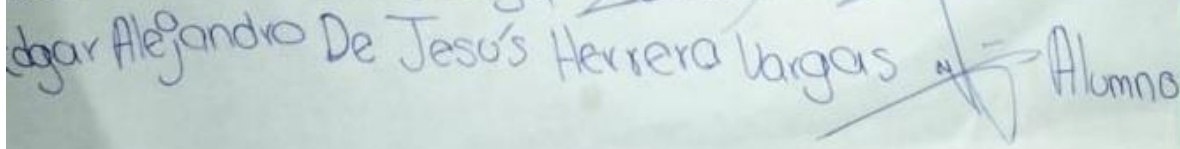 Edgar Alejandro De Jesús Herrera Vargas Alumno